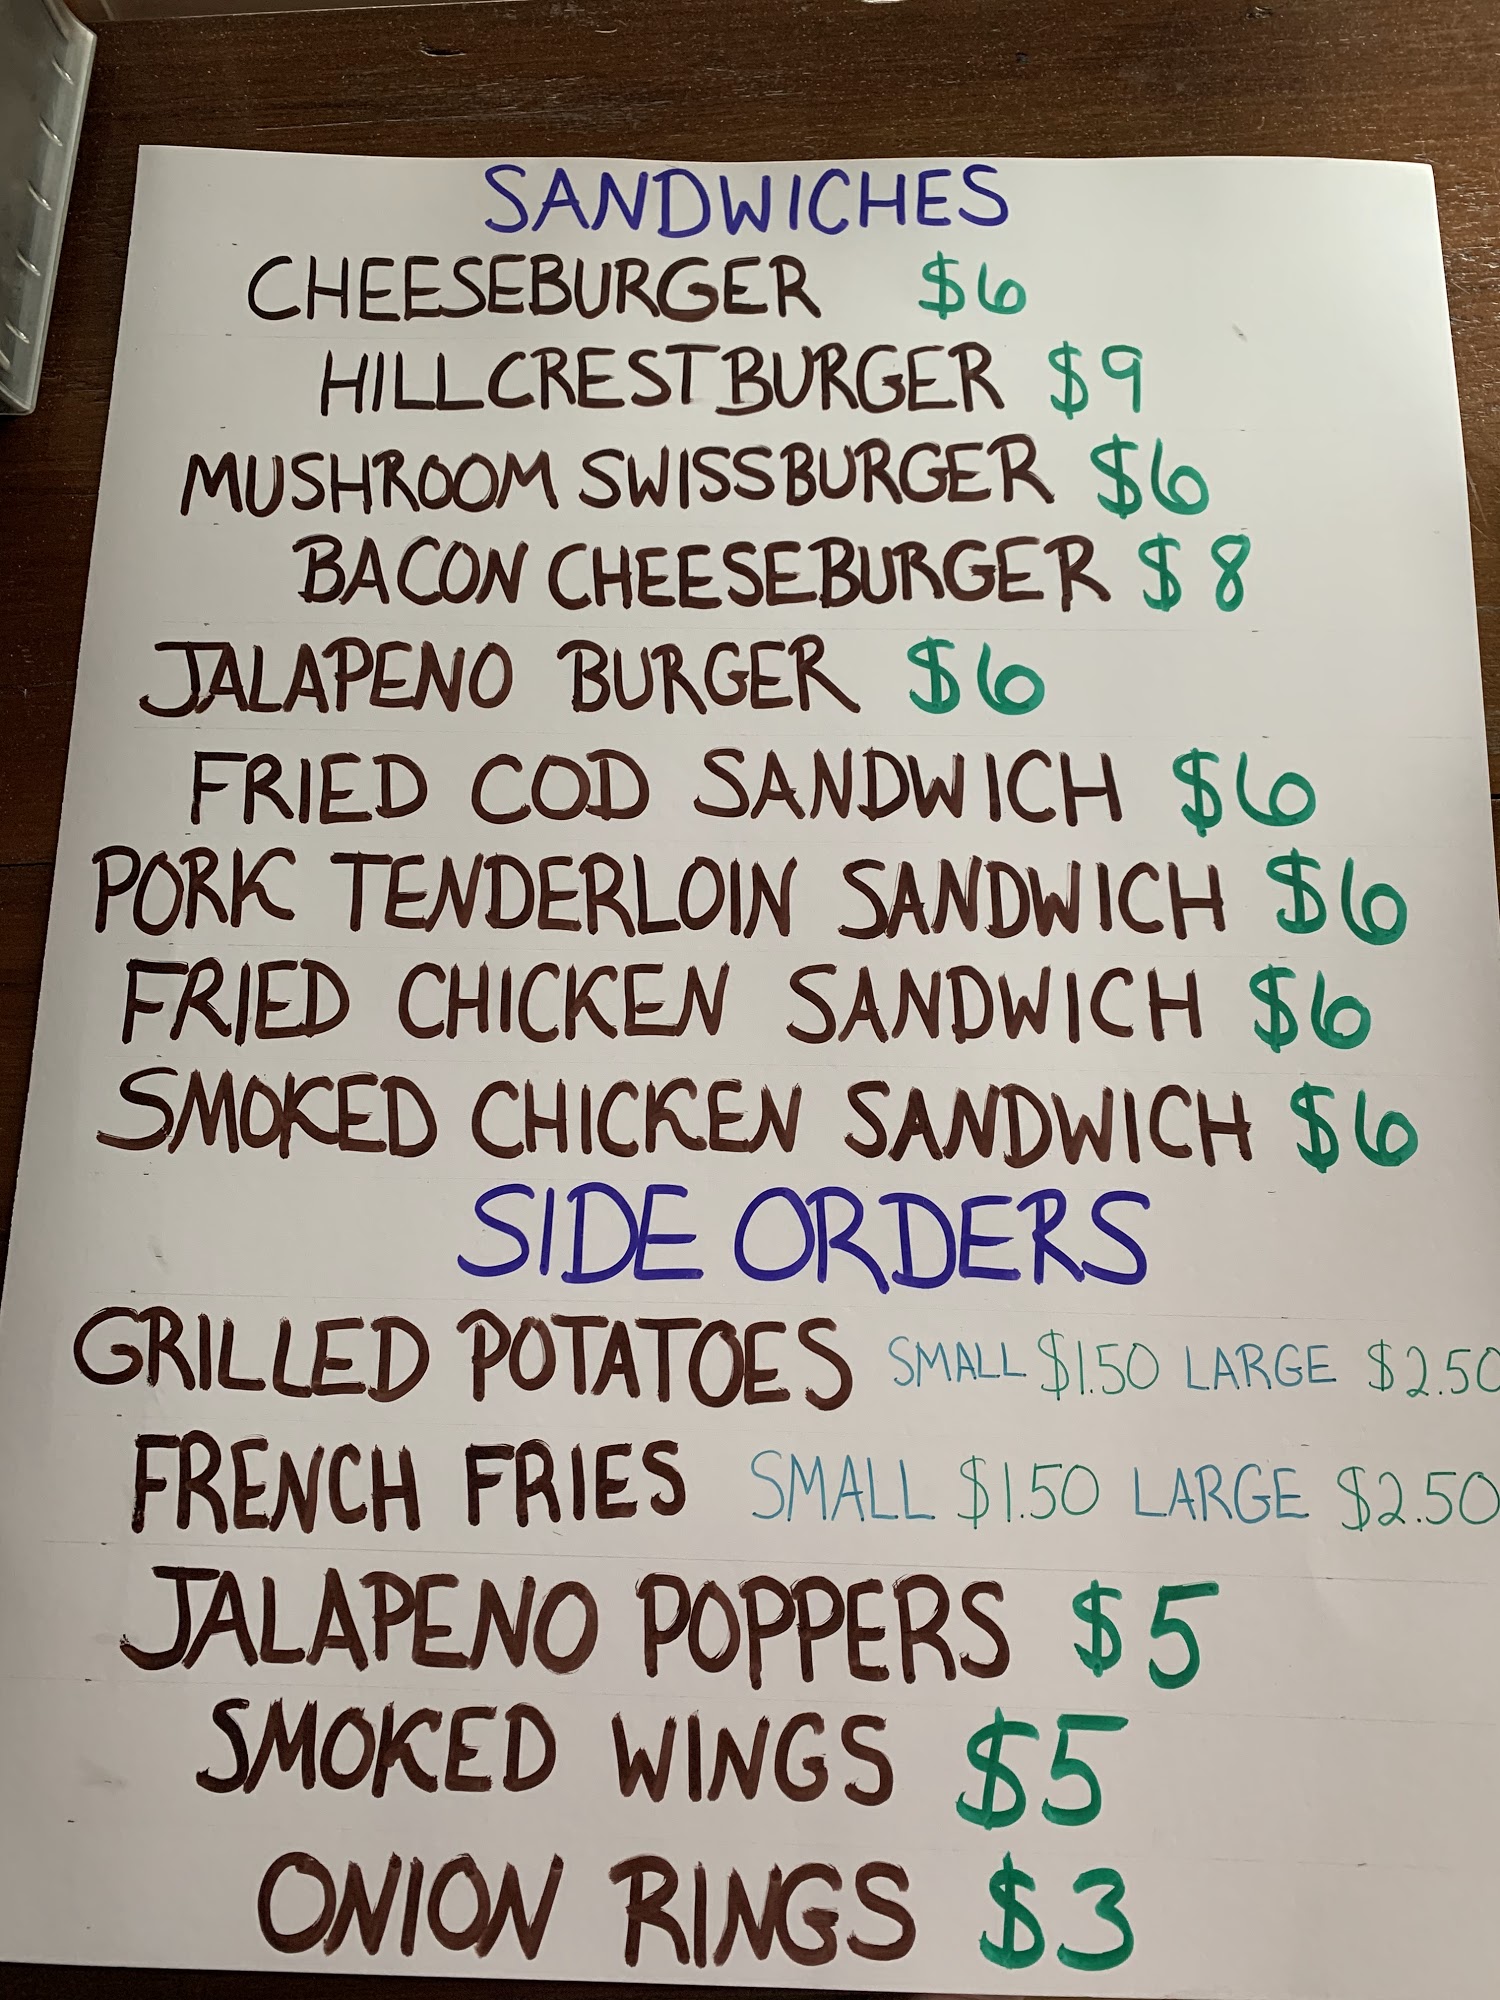 SANDWICHES
CHEESEBURGER $6
HILLCREST BURGER $9
MUSHROOM SWISS BURGER $6
BACON CHEESEBURGER $8
JALAPENO BURGER $6
FRIED COD SANDWICH $6
PORK TENDERLOIN SANDWICH $6
FRIED CHICKEN SANDWICH $6
SMOKED CHICKEN SANDWICH $6
SIDE ORDERS
GRILLED POTATOES SMALL $1.50 LARGE $2.50
FRENCH FRIES SMALL $1.50 LARGE $2.50
JALAPENO POPPERS $5
SMOKED WINGS $5
ONION RINGS $3